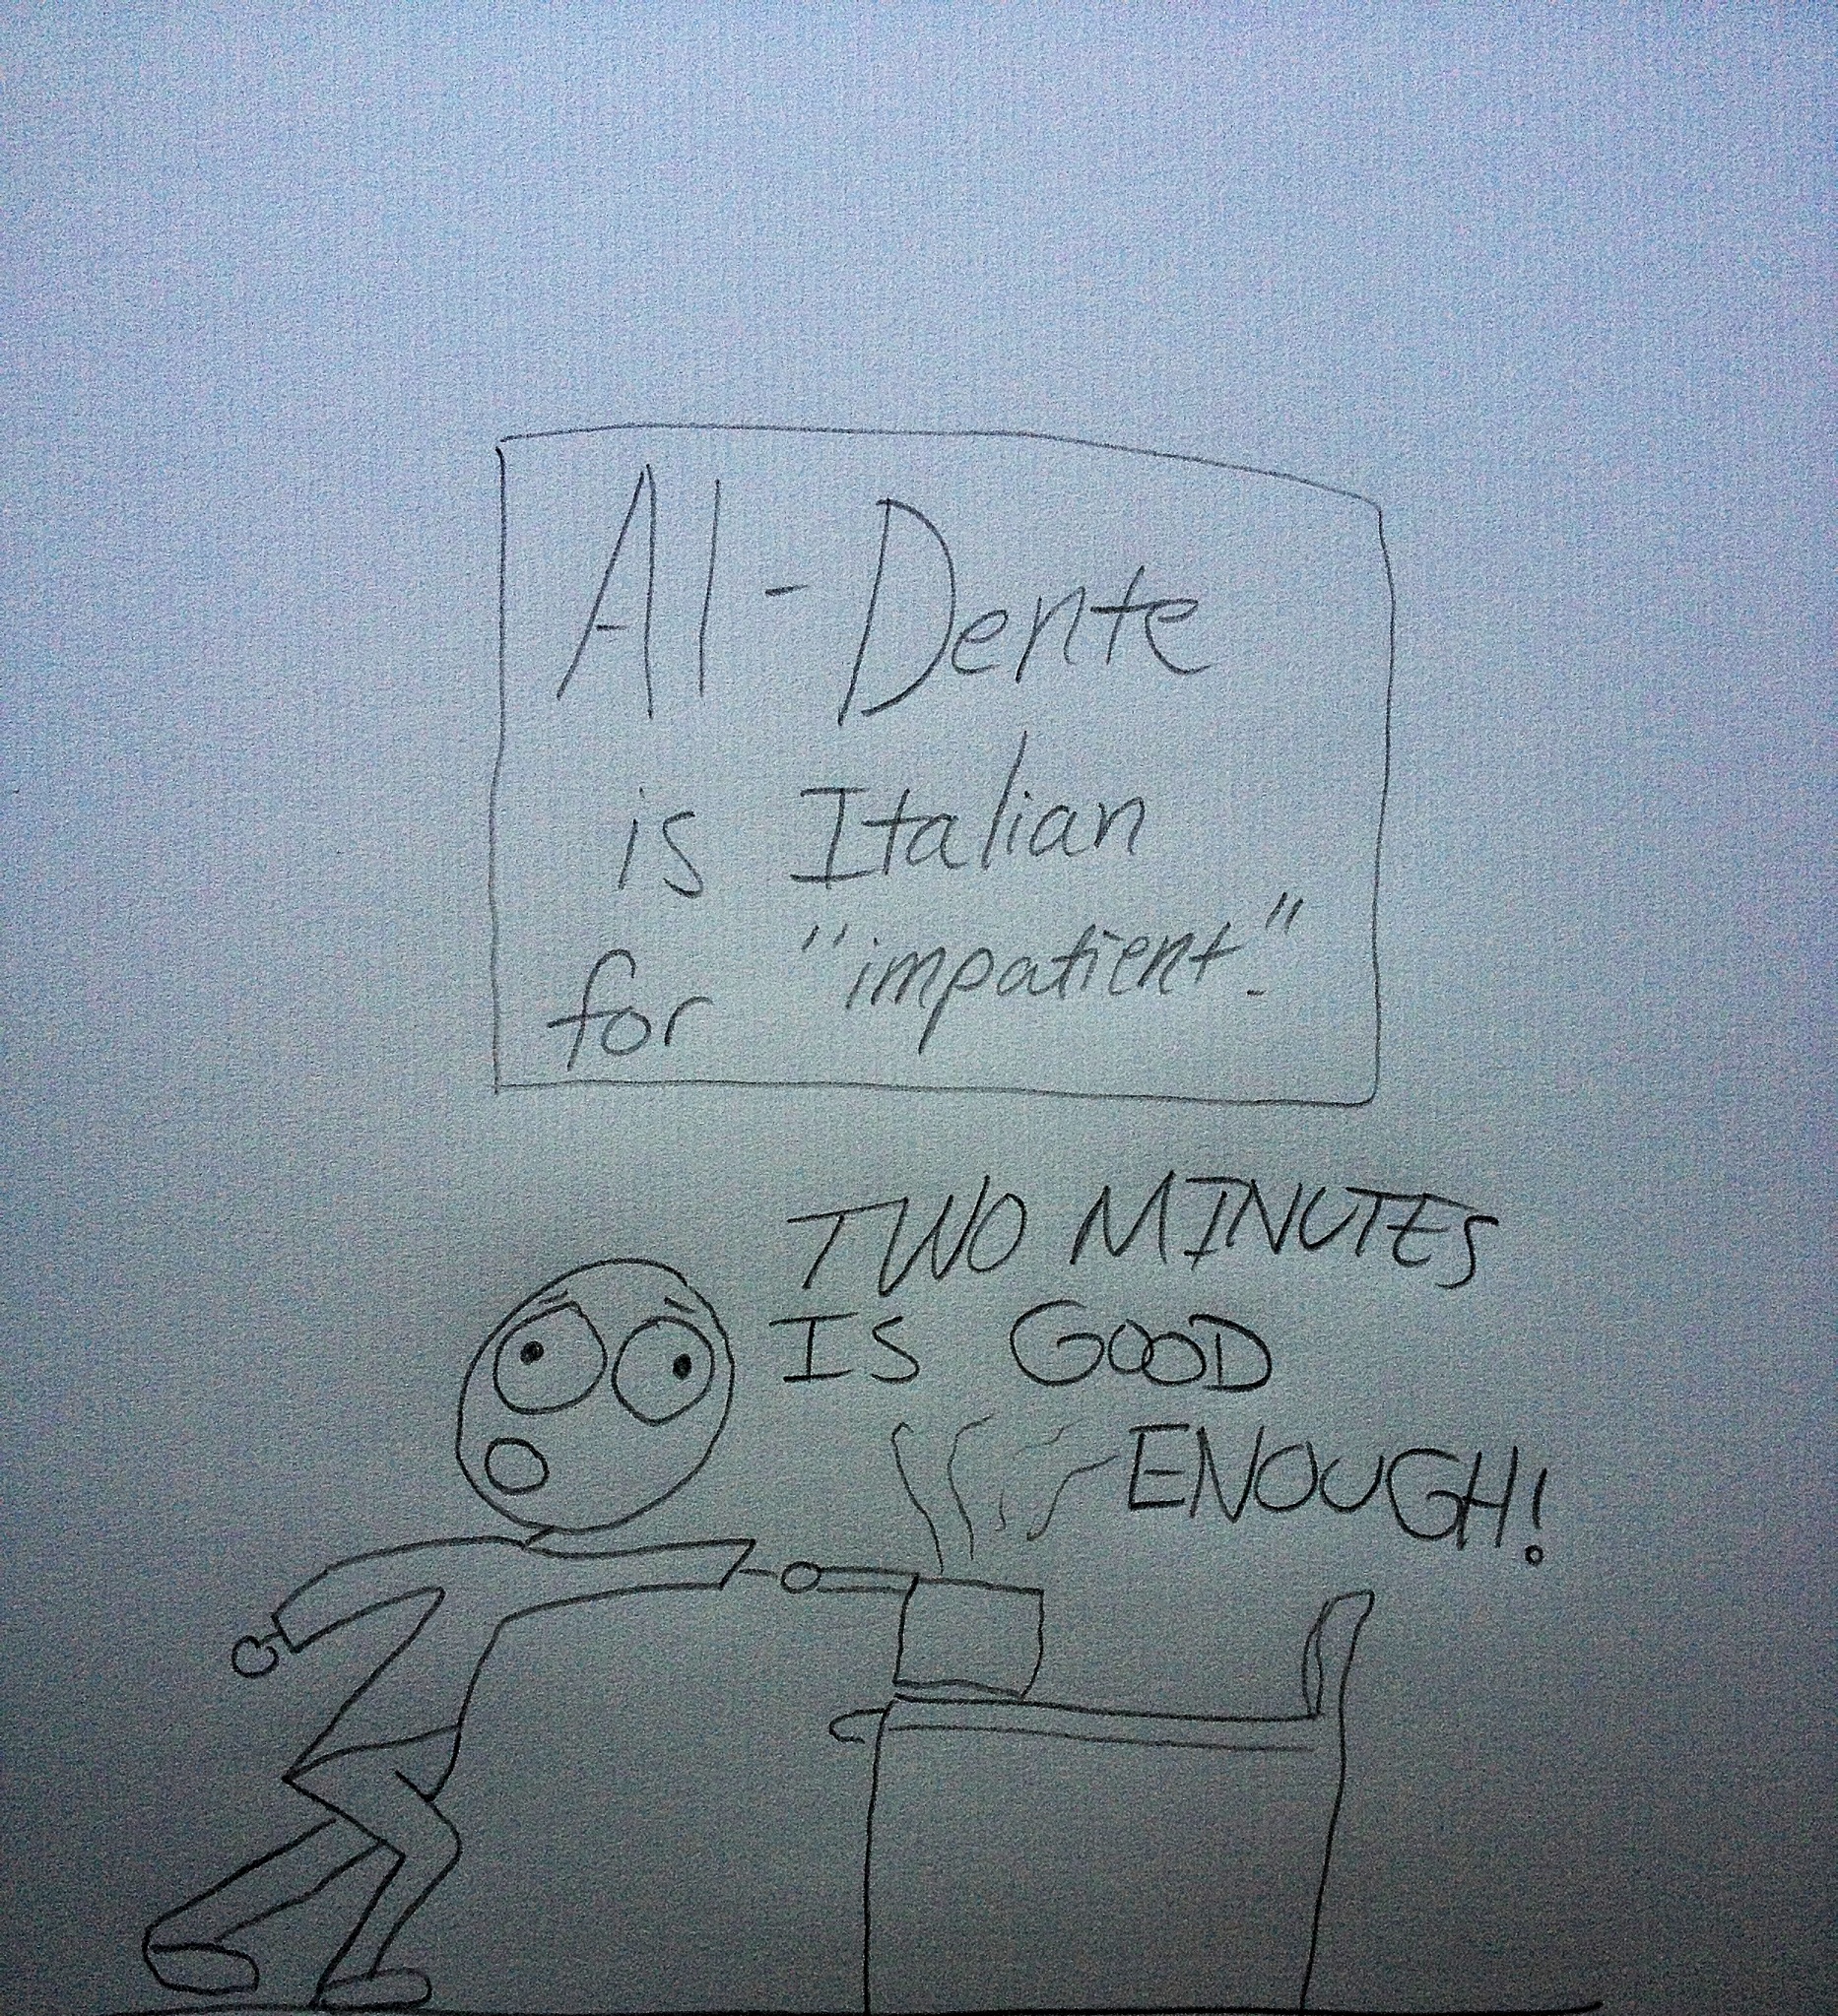 Al-Dente
is Italian
for "impatient."
TWO MINUTES
IS GOOD
ENOUGH!